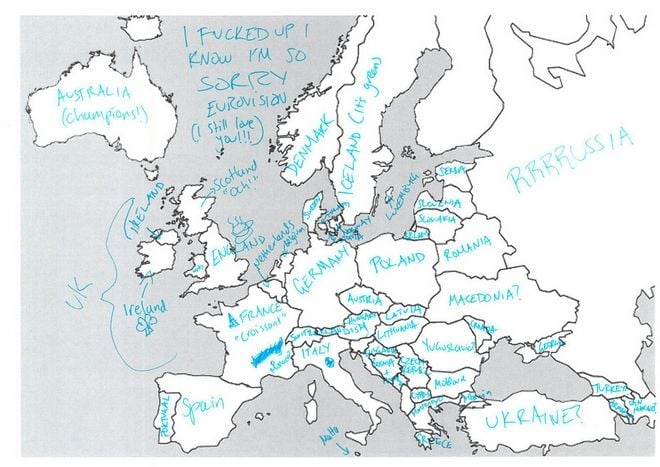 I FUCKED UP I
KNOW I'M SO
SORRY
EUROVISION
(I still love
you!!!)
AUSTRALIA
(champions!)
DENMARK
ICELAND (it's green)
RRRRUSSIA
SERBIA
LUXEMBURG
SLOVENIA
SLOVAKIA
IRELAND
Scotland
"Och!"
ENGLAND
UK
Ireland
Netherlands
Belgium
GERMANY
POLAND
ROMANIA
MACEDONIA?
AUSTRIA
LATVIA
LITHUANIA
Yugoslavia?
FRANCE
"Croissant"
ITALY
Monaco
GEORGIA
CZECH
MOLDOVA
PORTUGAL
Spain
Malta
GREECE
UKRAINE?
TURKEY
SAN
MARINO?